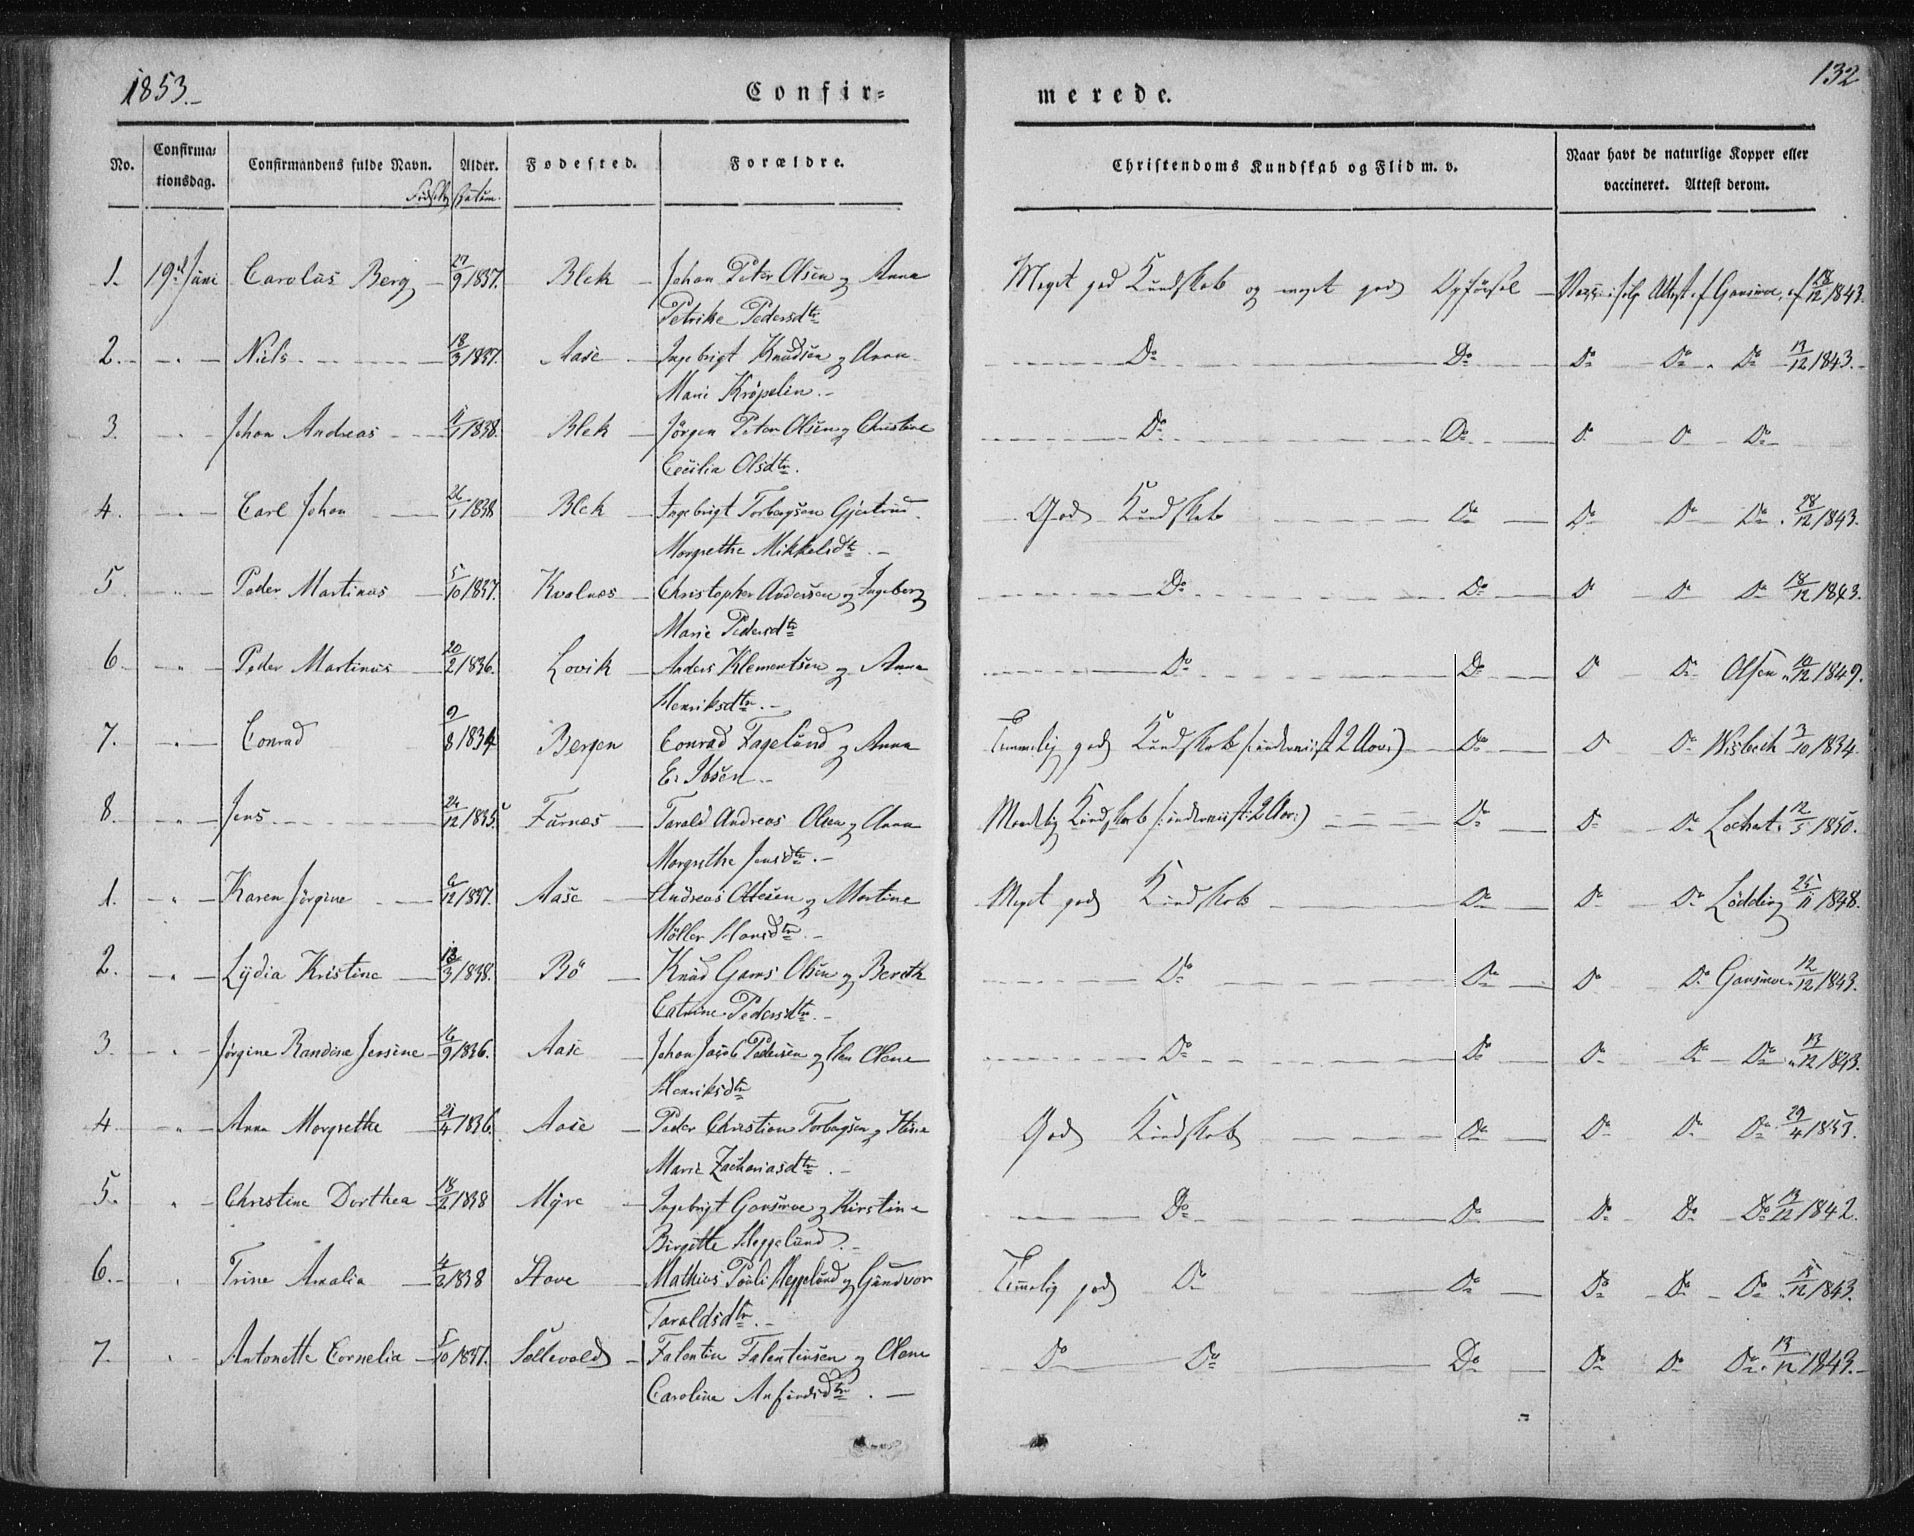 1853.
132
Confir-
merede.
No.
Confirma-
tionsdag.
Confirmandens fulde Navn.
Alder.
Fødested.
Forældre.
Christendoms Kundskab og Flid m. v.
Naar havt de naturlige Kopper eller
vaccineret. Attest derom.
Datum.
1. 19de Juni Carolus Berg 27/9 1837. Blek Johan Peter Olsen og Anna Meget god Kundskab og meget god Opførsel Attest af 18/12 1843.
Petrike Pedersdtr
2. " Niels 18/3 1837. Aase Ingebrigt Knudsen og Anna Do Do Do Do Do 13/12 1843.
Mari Krøpelin.
3. " Johan Andreas 1838. Blek Jørgen Peter Olsen og Christine Do Do Do Do Do
Cecilia Olsdtr.
4. " Carl Johan 26/1 1838 Blek Ingebrigt Torbergsen Gjertrud God Kundskab Do Do Do Do 28/12 1843.
Margrethe Mikkelsdtr.
5 " Peder Martinus 5/10 1837. Kvalnes Christopher Andersen og Ingeborg Do Do Do Do Do 18/12 1843.
Marie Pedersdtr
6 " Peder Martinus 20/2 1836. Lovik Anders Klementsen og Anna Do Do Do Do Olsen 1849.
Henriksdtr.
7. " Conrad 9/8 1834 Bergen Conrad Fagelund og Anna Temmelig god Kundskab (: underviist 2 Aar :) Do Do Do Wisbech 3/10 1834.
E. Ibsen
8. " Jens 24/12 1835. Furnes Tarald Andreas Olsen og Anna Maadelig Kundskab (: underviist 2 Aar :) Do Do Do Lochert 12/5 1850.
Margrethe Jensdtr.
1. " Karen Jørgine 6/12 1837. Aase Andreas Ottesen og Martine Meget god Kundskab Do Do Do Lødding 25/11 1848.
Møller Hansdtr.
2. " Lydia Kristine 1838. Bø Knud Gams Olsen og Bereth Do Do Do Do Gausmoe 12/12 1843.
Catrine Pedersdtr.
3. " Jørgine Randine Jensine 16/9 1836. Aase Johan Jacob Pedersen og Elen Olene Do Do Do Do Do 13/12 1843.
Henriksdtr
4 " Anna Margrethe 21/4 1836. Aase Peder Christian Torbergsen og God Kundskab Do Do Do Do 29/4 1853.
Marie Zachariasdtr.
5. " Christine Dorthea 18/2 1838 Myre Ingebrigt Gausmoe og Kirstine Do Do Do Do Do 13/12 1842.
Birgitte Heggelund.
6. " Trine Amalia 4/3 1838 Stave Mathias Pouli Heggelund og Gundvor Temmelig god Do Do Do Do Do 15/12 1843.
Taraldsdtr.
7. " Antonette Cornelia 5/10 1837. Sellevold Falentin Falentinsen og Olene Do Do Do Do Do Do 13/12 1843.
Caroline Anfindsdtr.